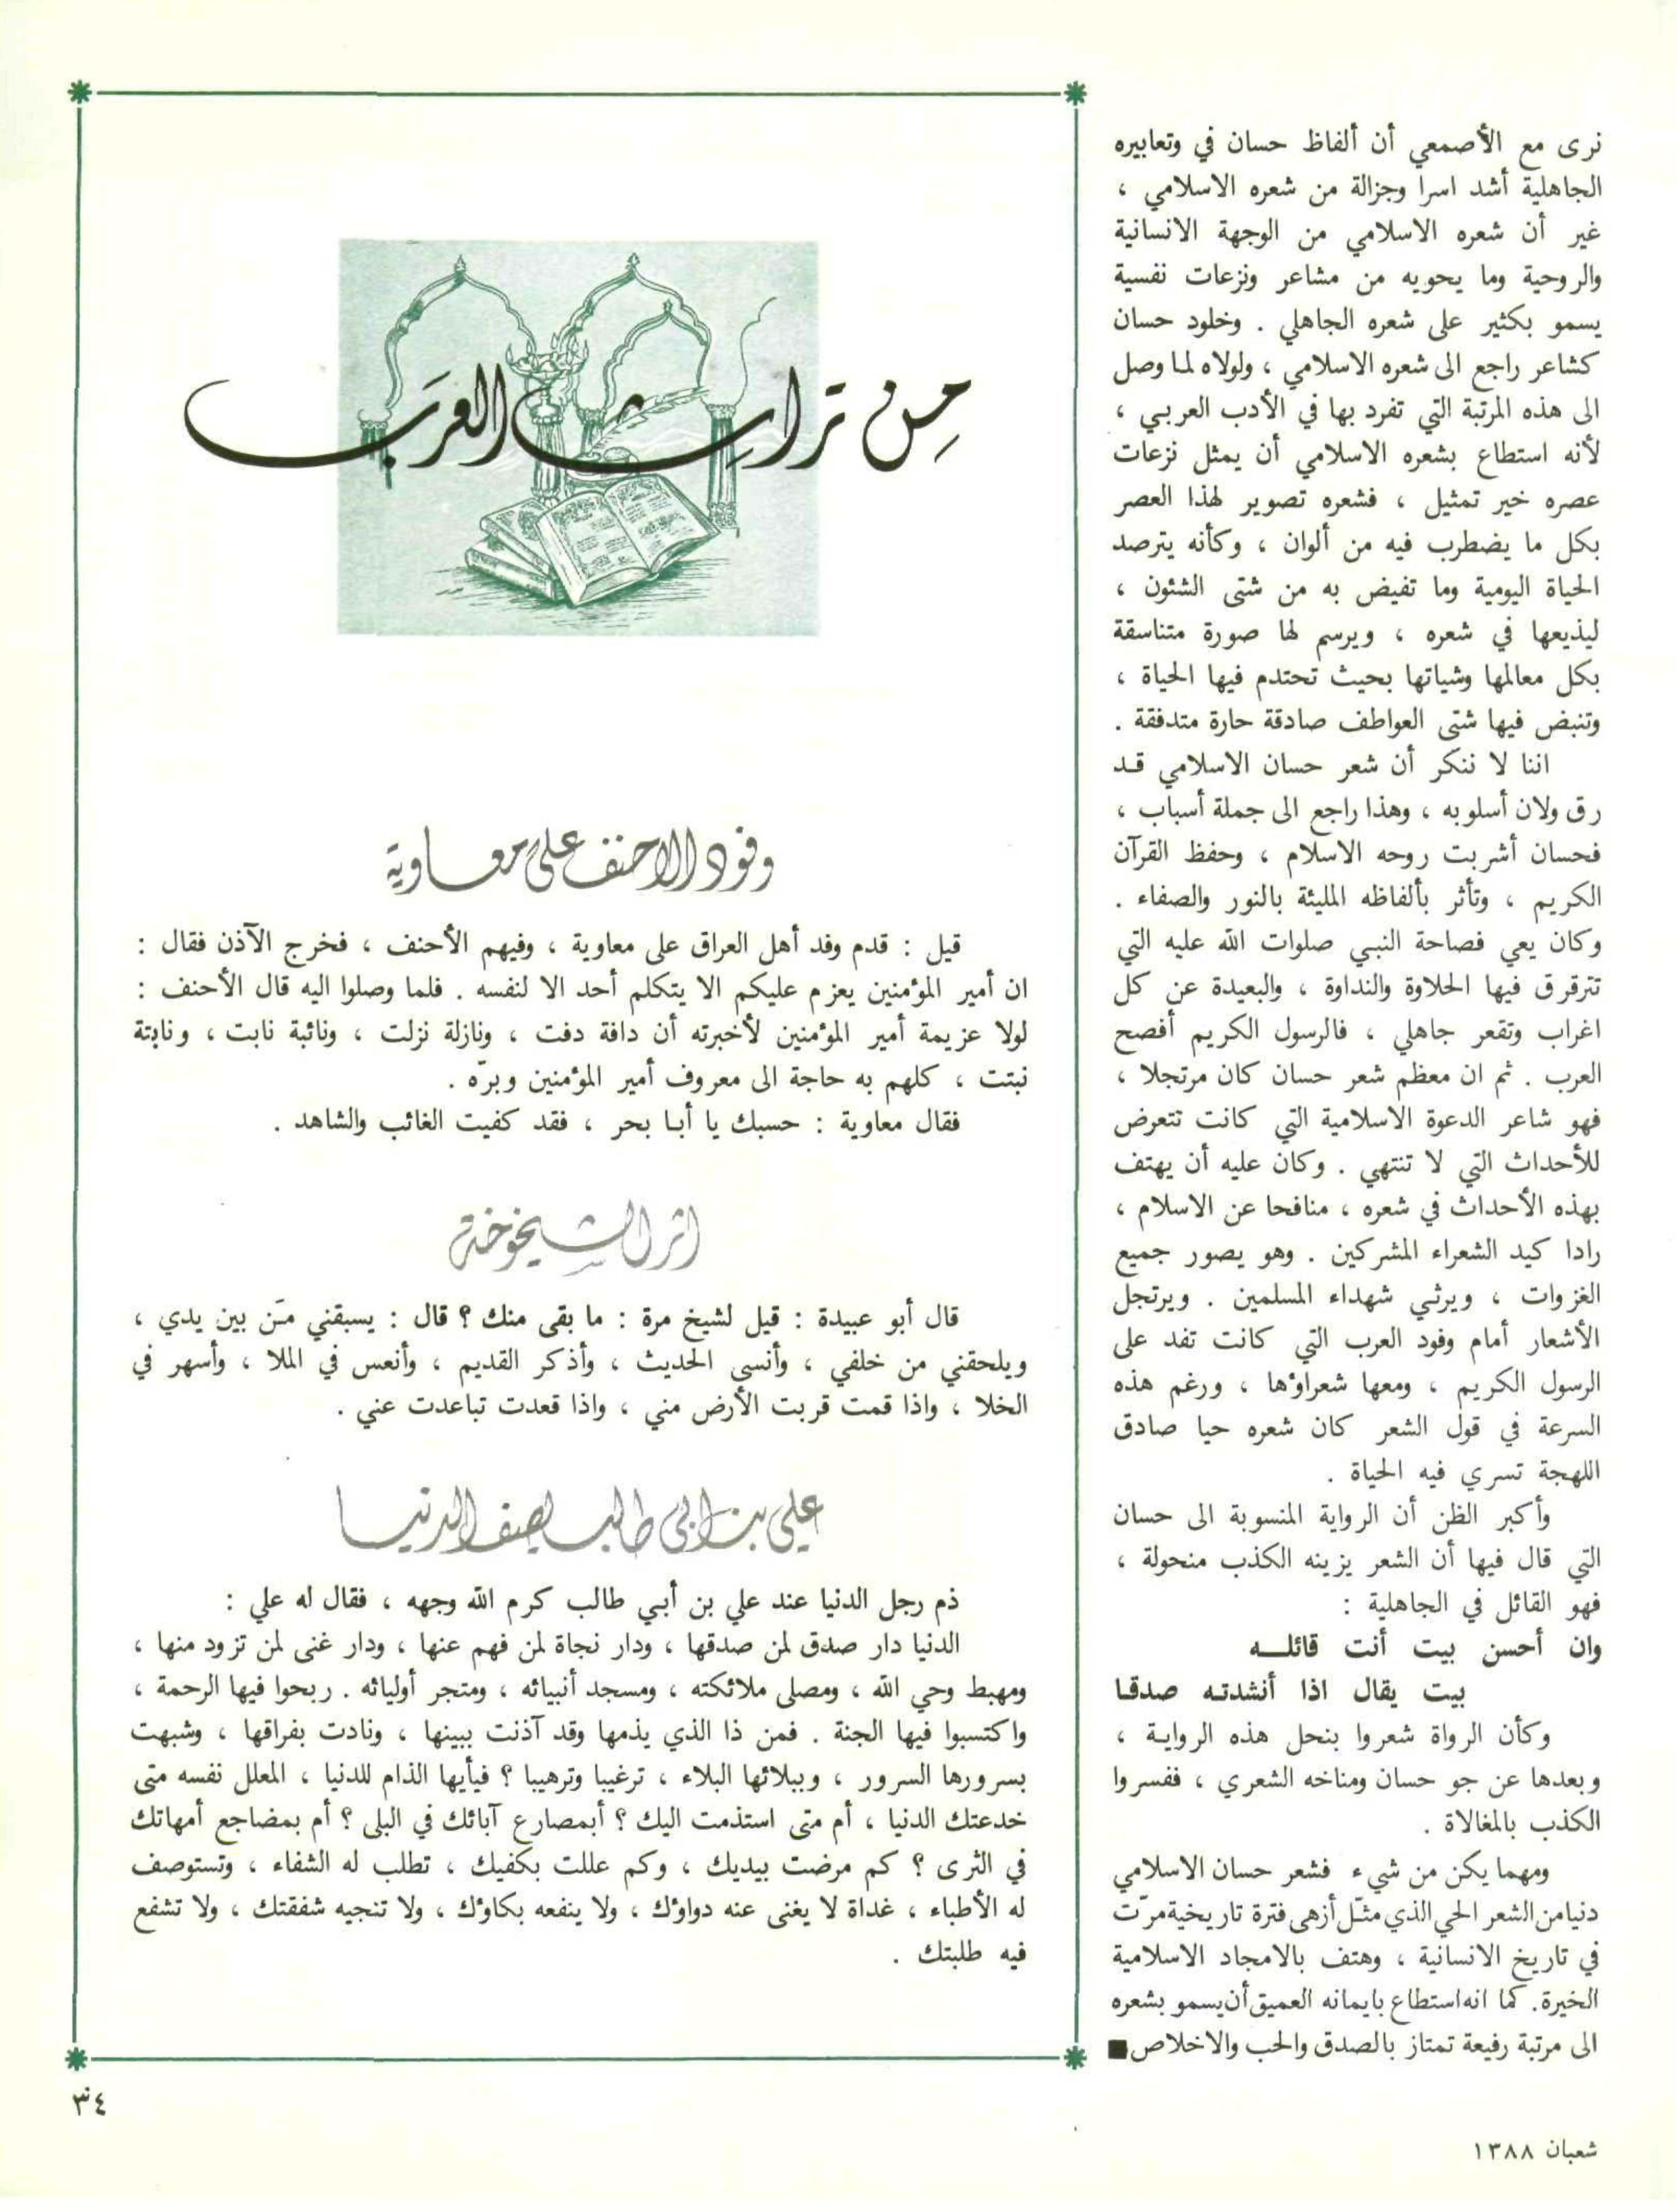 نرى مع الأصمعي أن ألفاظ حسان في وتعابيره
الجاهلية أشد اسرا وجزالة من شعره الاسلامي ،
غير أن شعره الاسلامي من الوجهة الانسانية
والروحية وما يحويه من مشاعر ونزعات نفسية
يسمو بكثير على شعره الجاهلي . وخلود حسان
كشاعر راجع الى شعره الاسلامي ، ولولاه لما وصل
الى هذه المرتبة التي تفرد بها في الأدب العربي ،
لأنه استطاع بشعره الاسلامي أن يمثل نزعات
عصره خير تمثيل ، فشعره تصوير لهذا العصر
بكل ما يضطرب فيه من ألوان ، وكأنه يترصد
الحياة اليومية وما تفيض به من شتى الشئون ،
ليذيعها في شعره ، ويرسم لها صورة متناسقة
بكل معالمها وشياتها بحيث تحتدم فيها الحياة ،
وتنبض فيها شتى العواطف صادقة حارة متدفقة .
اننا لا ننكر أن شعر حسان الاسلامي قد
رق ولان أسلوبه ، وهذا راجع الى جملة أسباب ،
فحسان أشربت روحه الاسلام ، وحفظ القرآن
الكريم ، وتأثر بألفاظه المليئة بالنور والصفاء .
وكان يعي فصاحة النبي صلوات الله عليه التي
تترقرق فيها الحلاوة والنداوة ، والبعيدة عن كل
اغراب وتقعر جاهلي ، فالرسول الكريم أفصح
العرب . ثم ان معظم شعر حسان كان مرتجلا ،
فهو شاعر الدعوة الاسلامية التي كانت تتعرض
للأحداث التي لا تنتهي . وكان عليه أن يهتف
بهذه الأحداث في شعره ، منافحا عن الاسلام ،
رادا كيد الشعراء المشركين . وهو يصور جميع
الغزوات ، ويرثي شهداء المسلمين . ويرتجل
الأشعار أمام وفود العرب التي كانت تفد على
الرسول الكريم ، ومعها شعراؤها ، ورغم هذه
السرعة في قول الشعر كان شعره حيا صادق
اللهجة تسري فيه الحياة .
وأكبر الظن أن الرواية المنسوبة الى حسان
التي قال فيها أن الشعر يزينه الكذب منحولة ،
فهو القائل في الجاهلية :
وان أحسن بيت أنت قائلـــه
بيت يقال اذا أنشدتـه صدقـا
وكأن الرواة شعروا بنحل هذه الروايـة ،
وبعدها عن جو حسان ومناخه الشعري ، ففسروا
الكذب بالمغالاة .
ومهما يكن من شيء فشعر حسان الاسلامي
دنيا من الشعر الحي الذي مثّل أزهى فترة تاريخية مرّت
في تاريخ الانسانية ، وهتف بالامجاد الاسلامية
الخيرة. كما انه استطاع بايمانه العميق أن يسمو بشعره
الى مرتبة رفيعة تمتاز بالصدق والحب والاخلاص ■
من تراث العرب
وفود الاحنف على معاوية
قيل : قدم وفد أهل العراق على معاوية ، وفيهم الأحنف ، فخرج الآذن فقال :
ان أمير المؤمنين يعزم عليكم الا يتكلم أحد الا لنفسه . فلما وصلوا اليه قال الأحنف :
لولا عزيمة أمير المؤمنين لأخبرته أن دافة دفت ، ونازلة نزلت ، ونائبة نابت ، ونابتة
نبتت ، كلهم به حاجة الى معروف أمير المؤمنين وبرّه .
فقال معاوية : حسبك يا أبـا بحر ، فقد كفيت الغائب والشاهد .
اثر الشيخوخة
قال أبو عبيدة : قيل لشيخ مرة : ما بقى منك ؟ قال : يسبقني مَن بين يدي ،
ويلحقني من خلفي ، وأنسى الحديث ، وأذكر القديم ، وأنعس في الملا ، وأسهر في
الخلا ، واذا قمت قربت الأرض مني ، واذا قعدت تباعدت عني .
علي بن ابي طالب يصف الدنيا
ذم رجل الدنيا عند علي بن أبي طالب كرم الله وجهه ، فقال له علي :
الدنيا دار صدق لمن صدقها ، ودار نجاة لمن فهم عنها ، ودار غنى لمن تزود منها ،
ومهبط وحي الله ، ومصلى ملائكته ، ومسجد أنبيائه ، ومتجر أوليائه . ربحوا فيها الرحمة ،
واكتسبوا فيها الجنة . فمن ذا الذي يذمها وقد آذنت ببينها ، ونادت بفراقها ، وشبهت
بسرورها السرور ، وببلائها البلاء ، ترغيبا وترهيبا ؟ فيأيها الذام للدنيا ، المعلل نفسه متى
خدعتك الدنيا ، أم متى استذمت اليك ؟ أبمصارع آبائك في البلى ؟ أم بمضاجع أمهاتك
في الثرى ؟ كم مرضت بيديك ، وكم عللت بكفيك ، تطلب له الشفاء ، وتستوصف
له الأطباء ، غداة لا يغنى عنه دواؤك ، ولا ينفعه بكاؤك ، ولا تنجيه شفقتك ، ولا تشفع
فيه طلبتك .
٣٤
شعبان ١٣٨٨